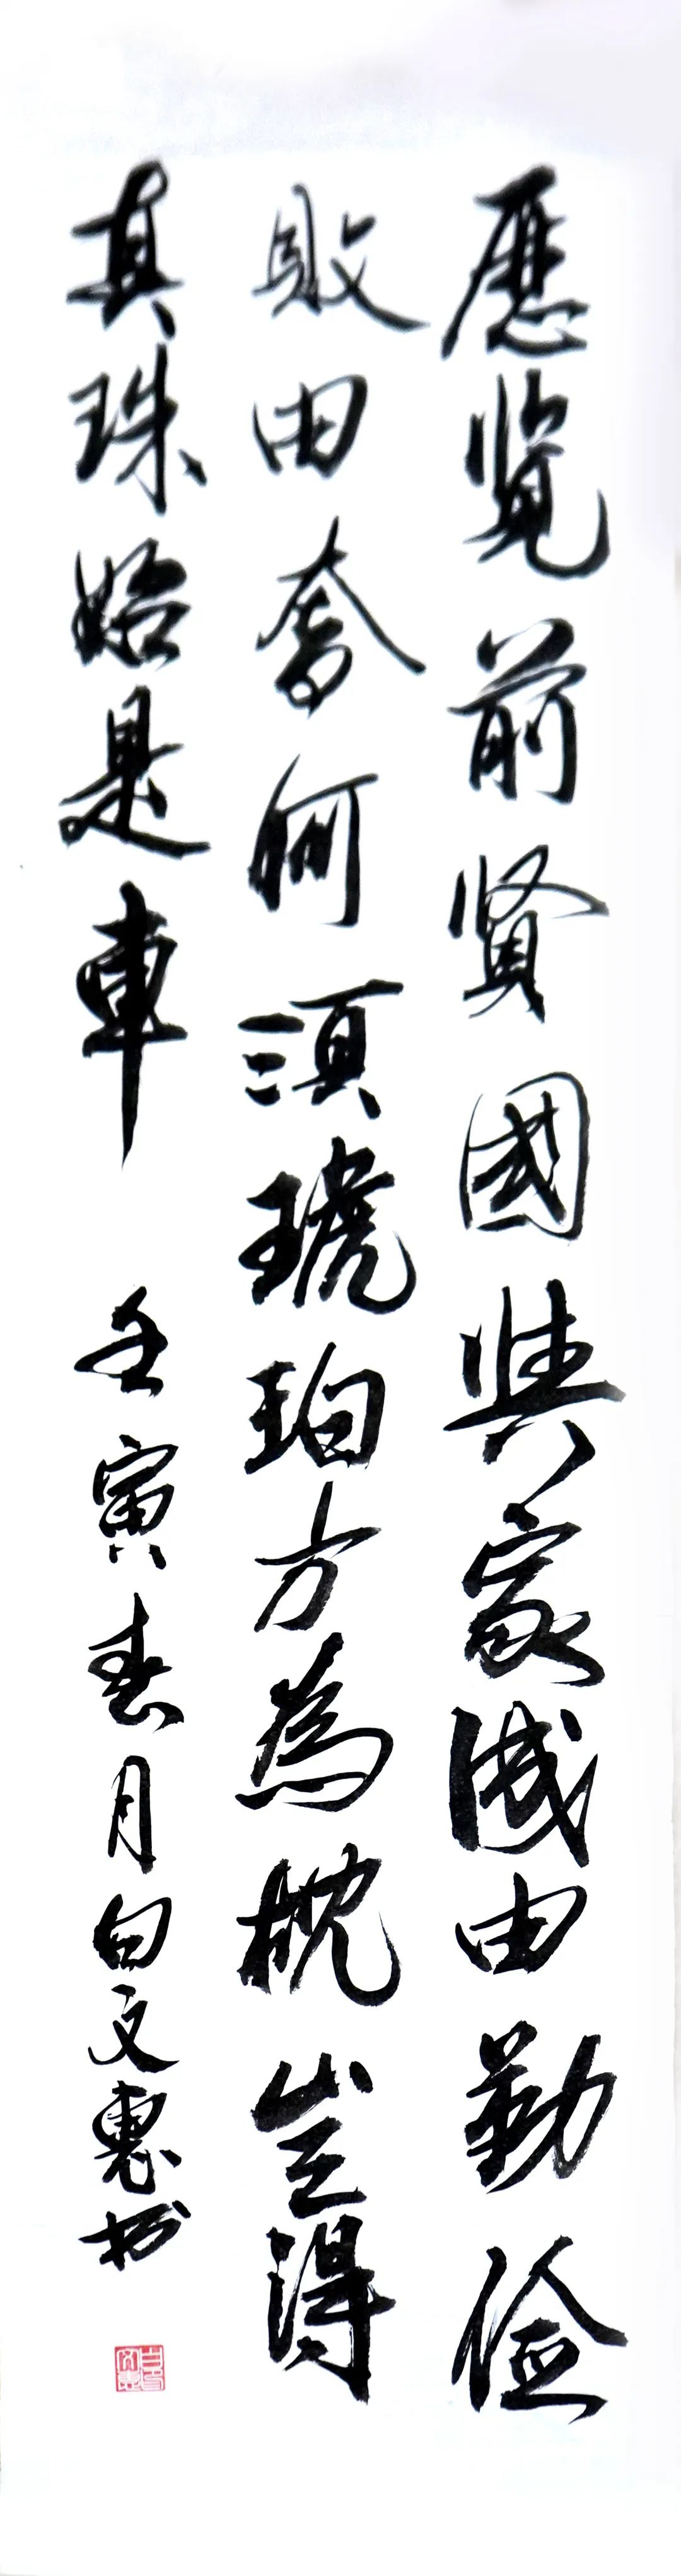 歷览前贤國與家成由勤俭
敗由奢何須琥珀方為枕豈得
真珠始是車 壬寅春月白文惠抄